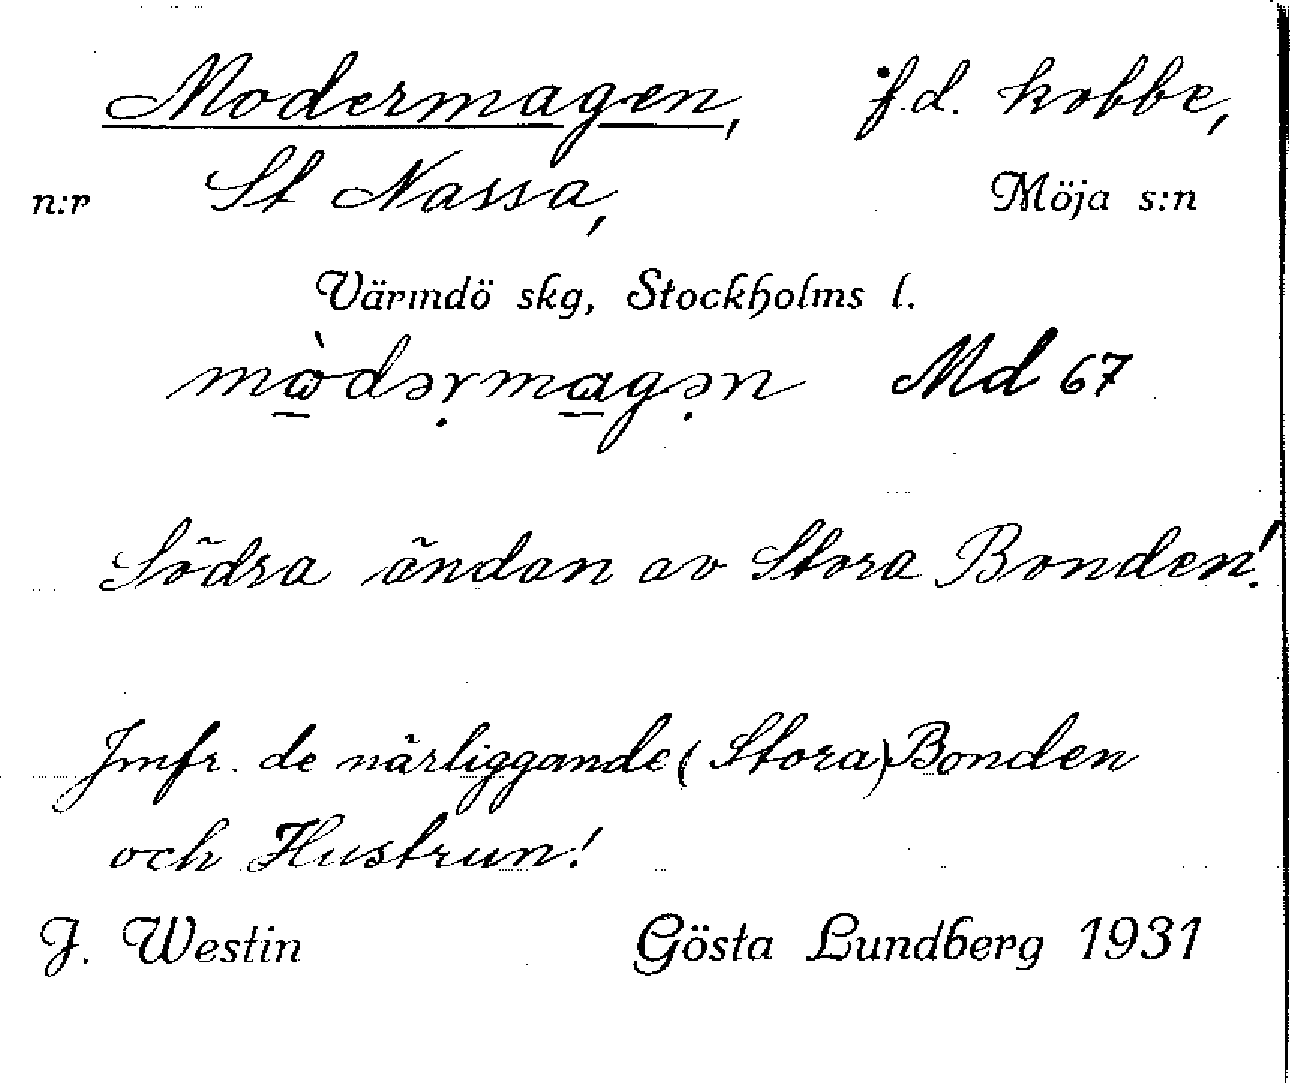 Modermagen, f.d. kobbe,
n:r St Nassa, Möja s:n
Värmdö skg, Stockholms l.
mὼdəṛmagə̣n Md 67
Södra ändan av Stora Bonden!
Jmfr. de närliggande (Stora) Bonden
och Hustrun!
J. Westin Gösta Lundberg 1931